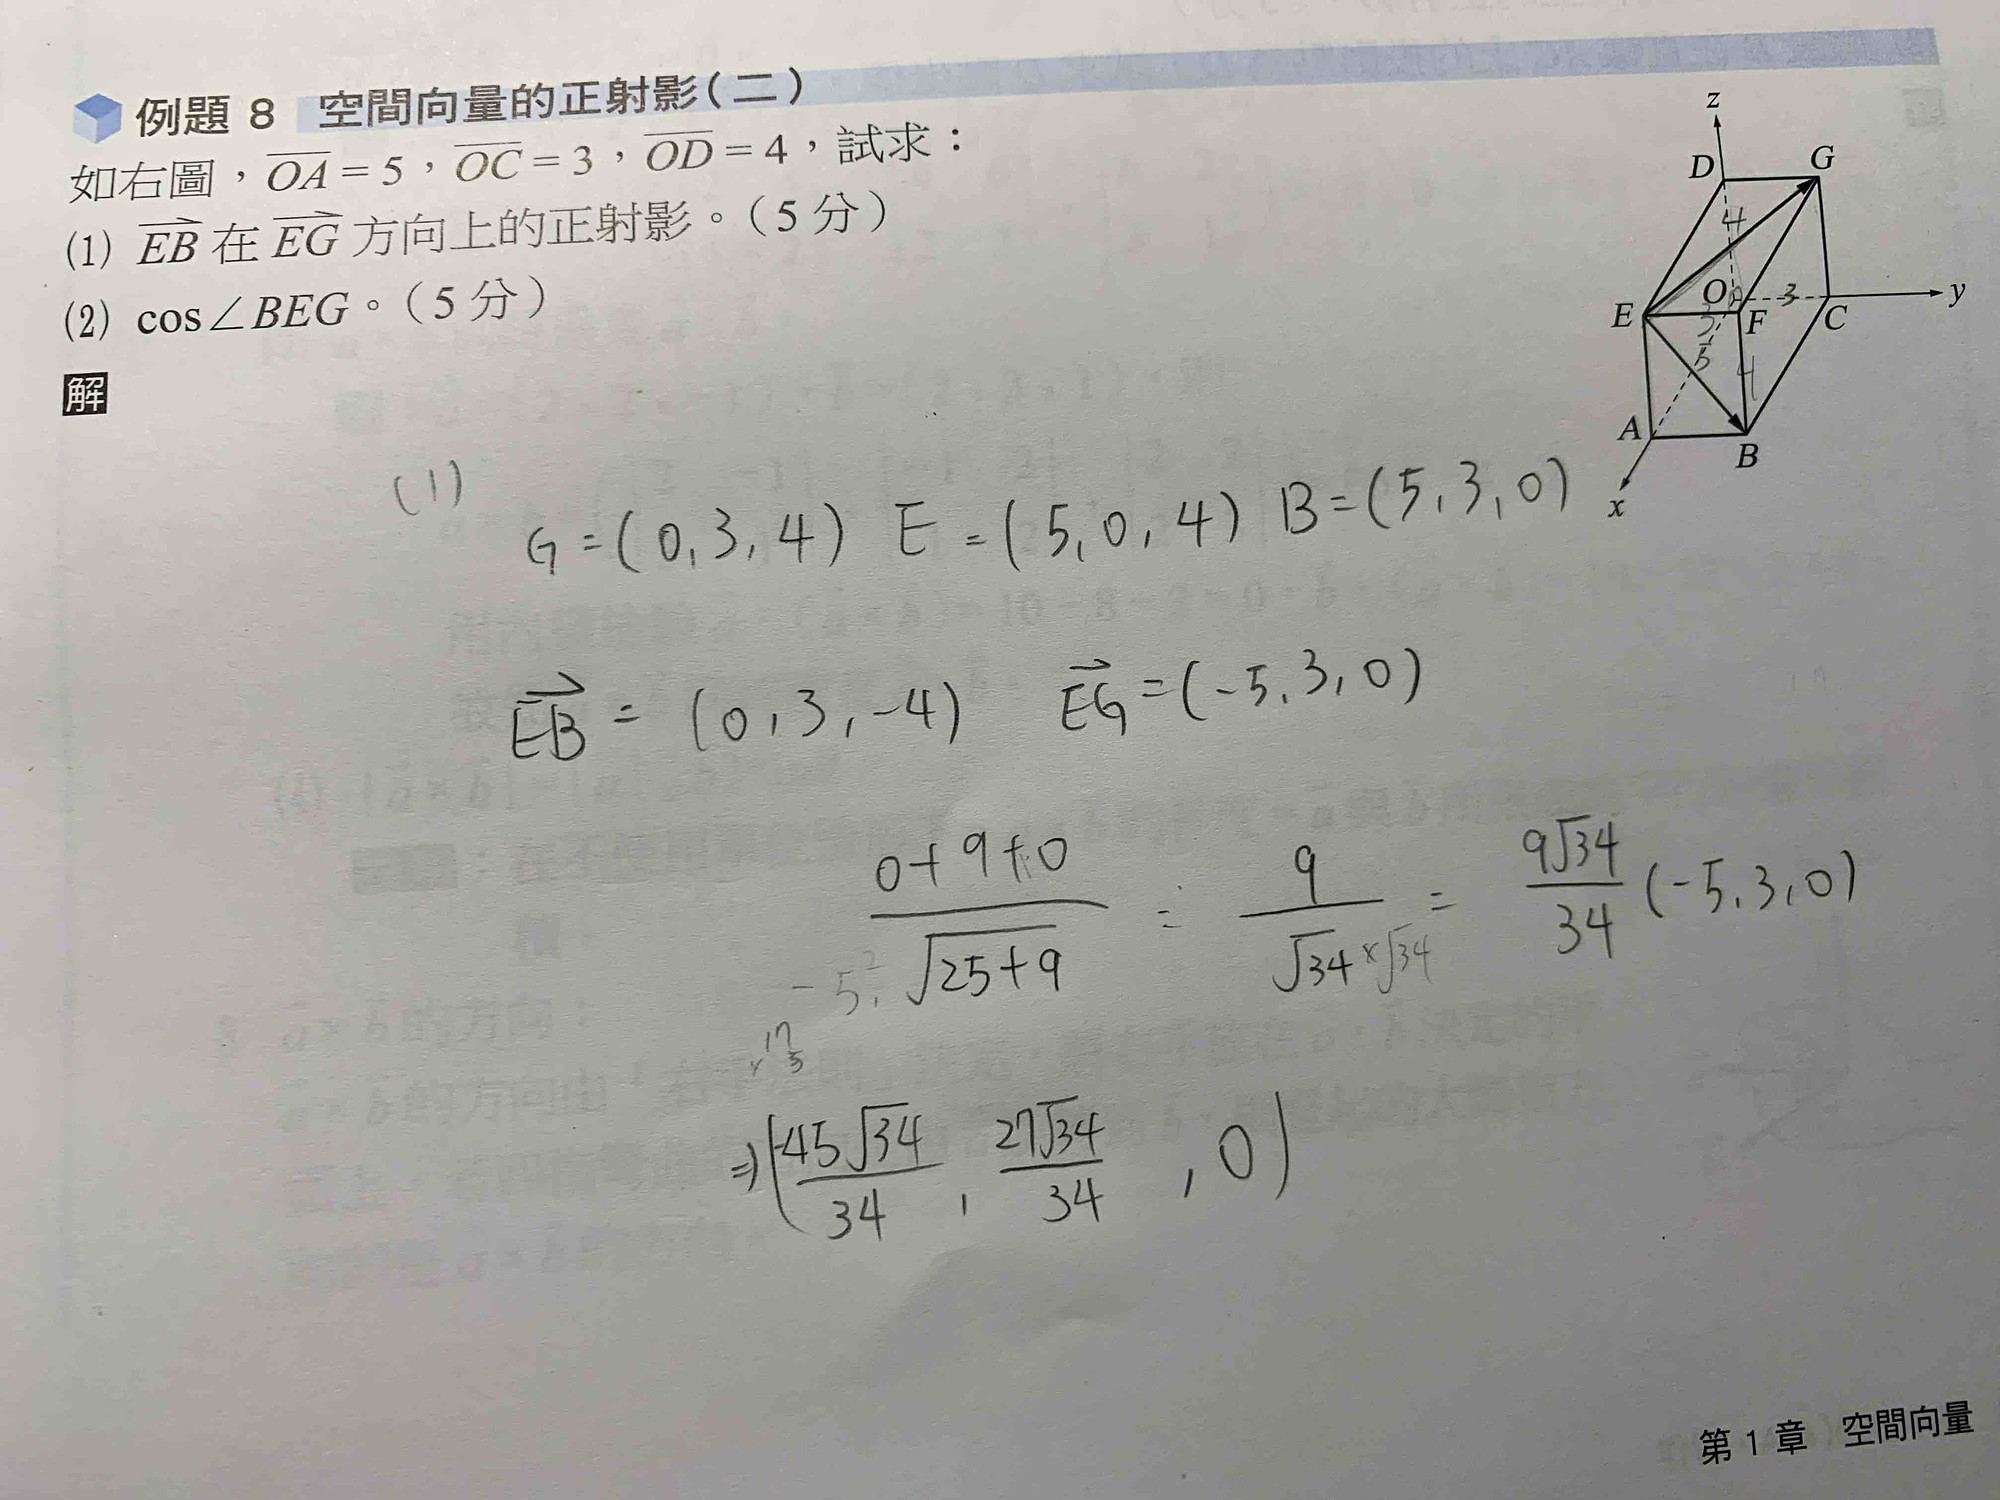 例題 8 空間向量的正射影(二)
如右圖,OA=5,OC=3,OD=4,試求:
(1) EB 在 EG 方向上的正射影。(5 分)
(2) cos∠BEG。(5 分)
解
z
D G
4
E O F 3 C y
5 4
A B
x
(1)
G=(0,3,4) E=(5,0,4) B=(5,3,0)
EB=(0,3,-4) EG=(-5,3,0)
0+9+0/√25+9 = 9/√34×√34 = 9√34/34 (-5,3,0)
⇒(-45√34/34, 27√34/34, 0)
第 1 章 空間向量